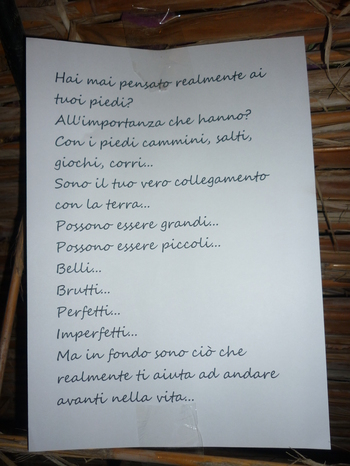 Hai mai pensato realmente ai
tuoi piedi?
All'importanza che hanno?
Con i piedi cammini, salti,
giochi, corri...
Sono il tuo vero collegamento
con la terra...
Possono essere grandi...
Possono essere piccoli...
Belli...
Brutti...
Perfetti...
Imperfetti...
Ma in fondo sono ciò che
realmente ti aiuta ad andare
avanti nella vita...